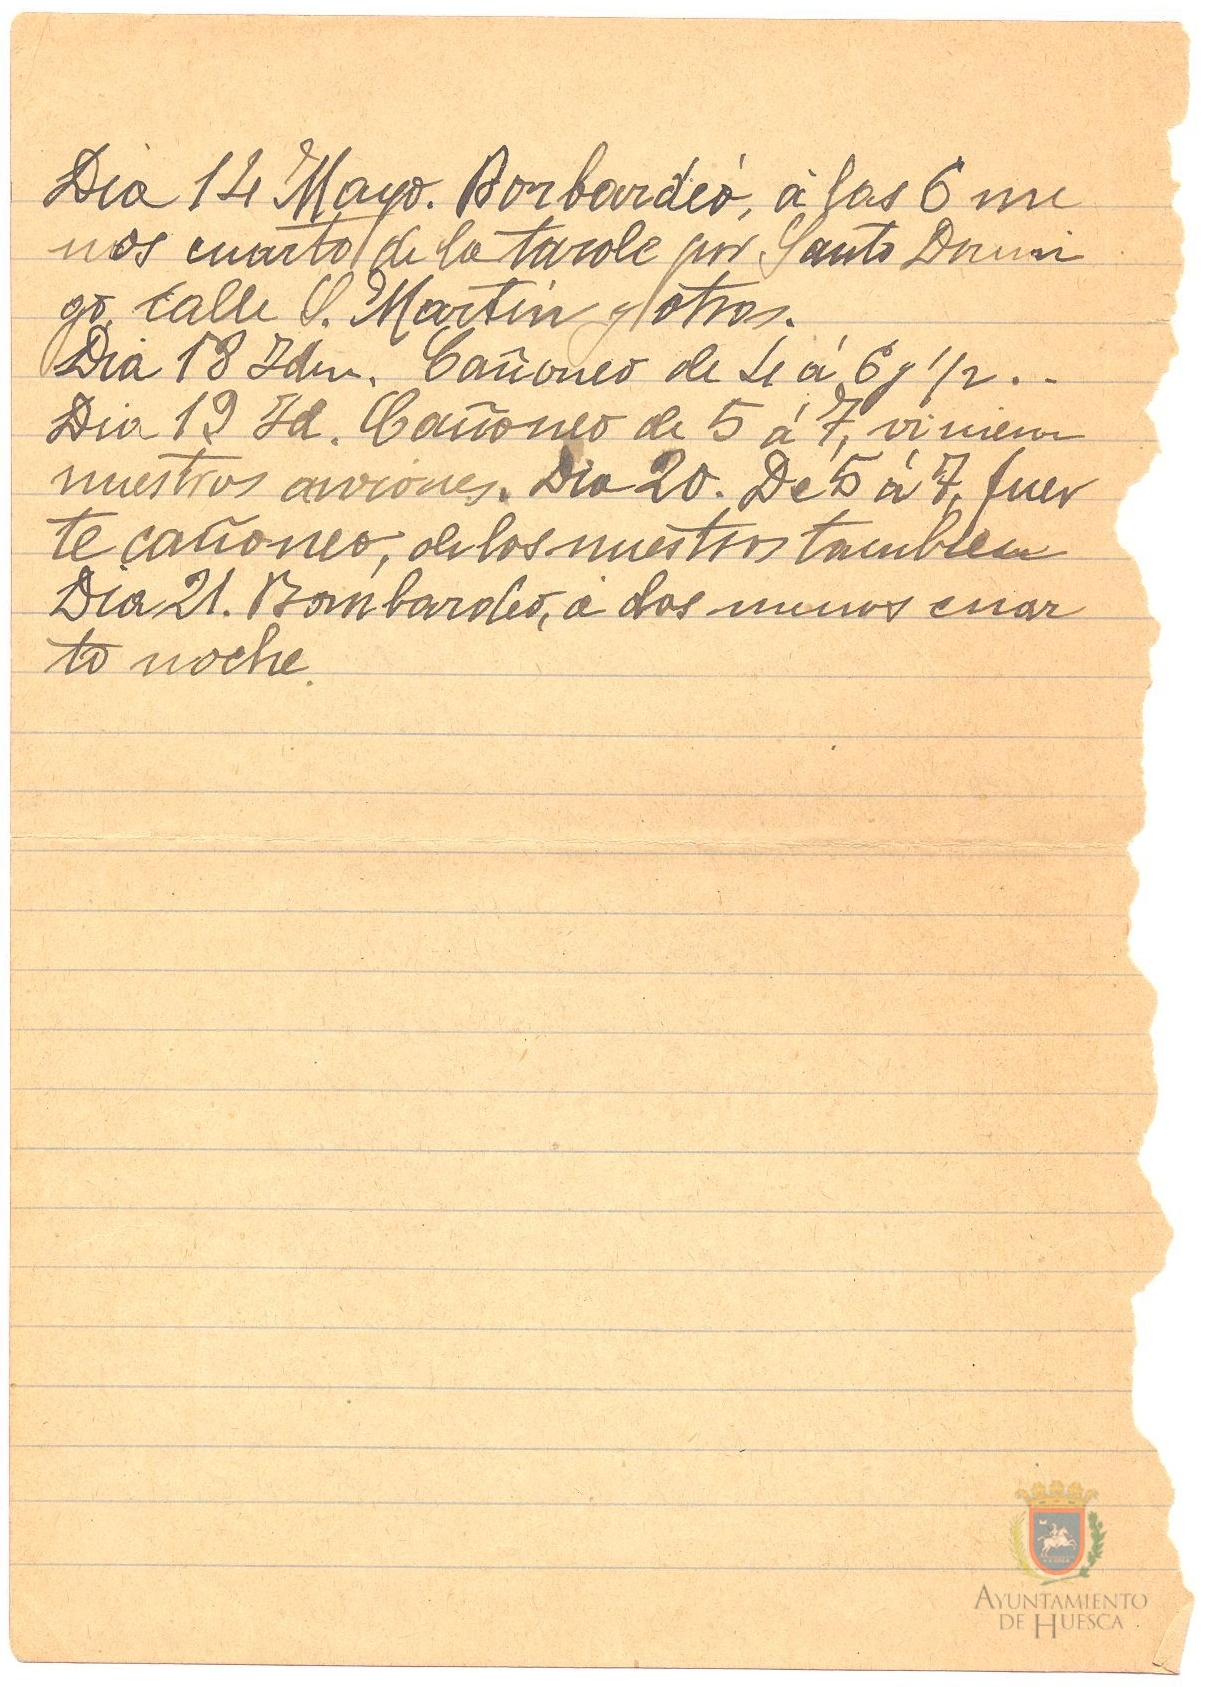 Dia 14 Mayo. Bonbardeó, á las 6 me
nos cuarto de la tarde por Santo Domin
go, calle S. Martin y otras.
Dia 18 Idm. Cañoneo de 4 á 6 y 1/2. -
Dia 19 Id. Cañoneo de 5 á 7, vinieron
nuestros aviones. Dia 20. De 5 á 7, fuer
te cañoneo, de los nuestros tambien
Dia 21. Bombardeo, á dos menos cuar
to noche.
AYUNTAMIENTO
DE HUESCA